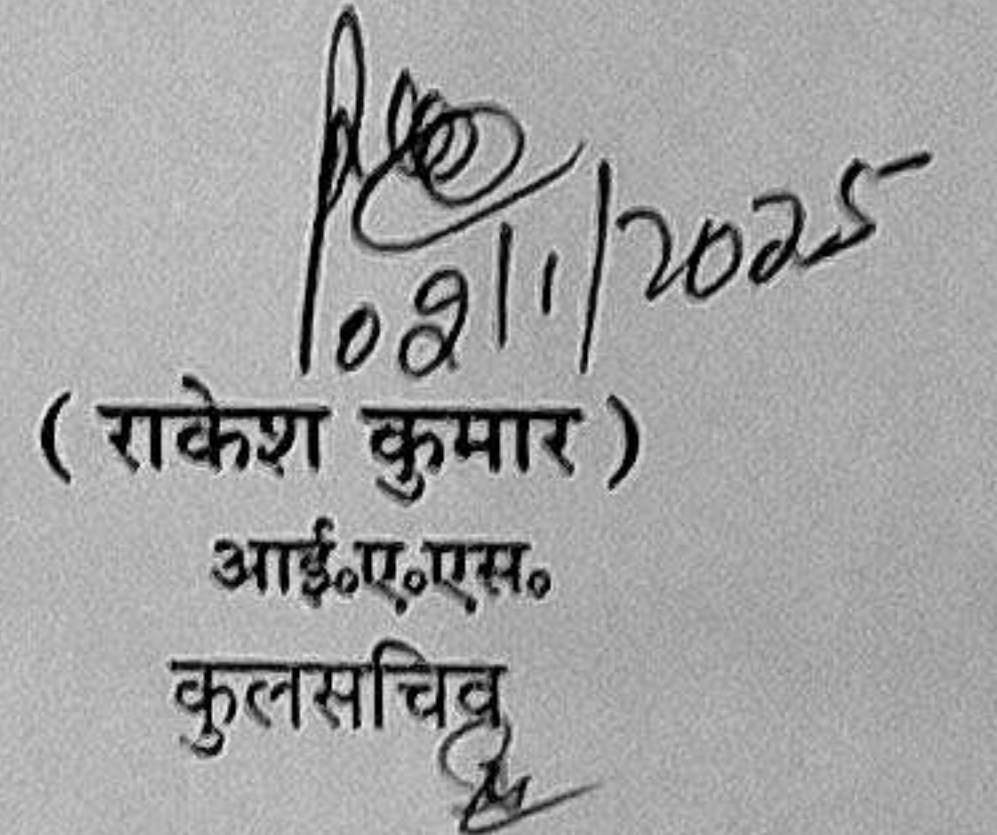 02/1/2025
( राकेश कुमार )
आई०ए०एस०
कुलसचिव